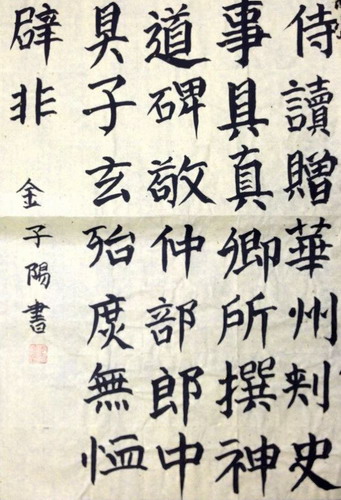 侍讀贈華州刾史
事具真卿所撰神
道碑敬仲部郎中
具子玄殆庶無恤
辟非
金子陽書